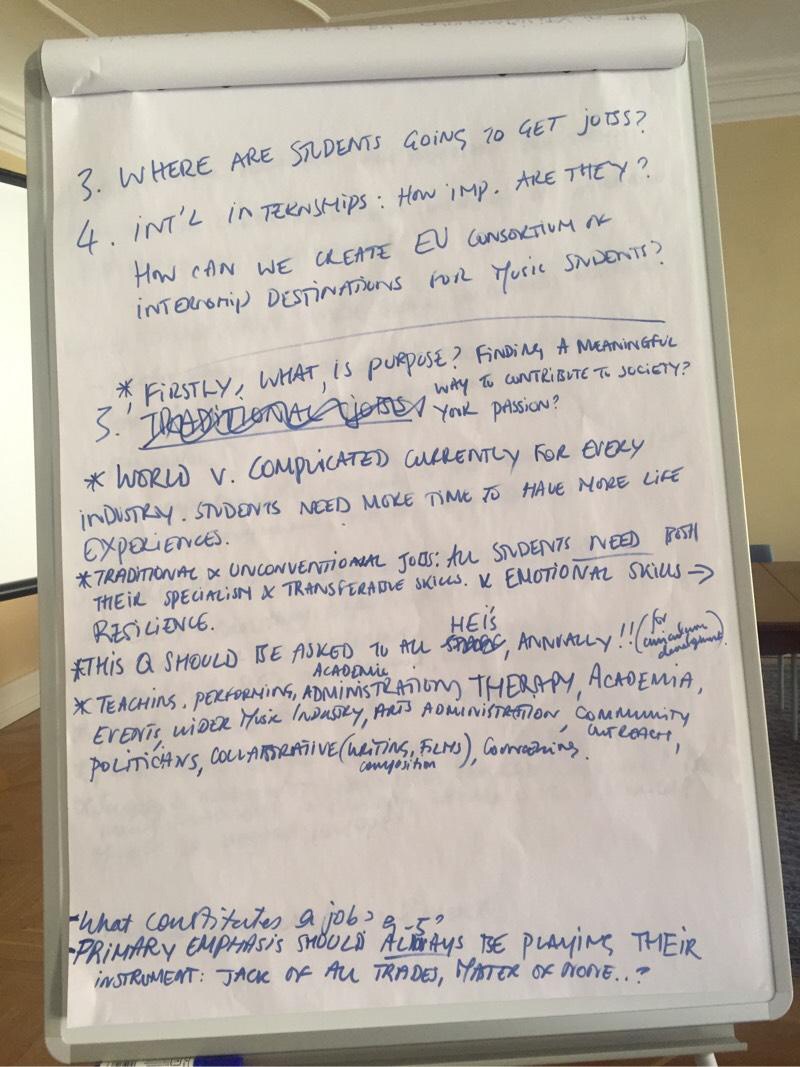 3. WHERE ARE STUDENTS GOING TO GET JOBS?
4. INT'L INTERNSHIPS: HOW IMP. ARE THEY?
HOW CAN WE CREATE EU CONSORTIUM OF
INTERNSHIP DESTINATIONS FOR MUSIC STUDENTS?
* FIRSTLY, WHAT IS PURPOSE? FINDING A MEANINGFUL
WAY TO CONTRIBUTE TO SOCIETY?
3. TRADITIONAL JOBS YOUR PASSION?
* WORLD V. COMPLICATED CURRENTLY FOR EVERY
INDUSTRY. STUDENTS NEED MORE TIME TO HAVE MORE LIFE
EXPERIENCES.
* TRADITIONAL & UNCONVENTIONAL JOBS: ALL STUDENTS NEED BOTH
THEIR SPECIALISM & TRANSFERABLE SKILLS. & EMOTIONAL SKILLS →
RESILIENCE.
* THIS Q SHOULD BE ASKED TO ALL HEI's, ANNUALLY!! (for curriculum development)
* TEACHING, PERFORMING, ACADEMIC ADMINISTRATION, THERAPY, ACADEMIA,
EVENTS, WIDER MUSIC INDUSTRY, ARTS ADMINISTRATION, COMMUNITY OUTREACH,
POLITICANS, COLLABORATIVE (WRITING, FILMS) composition),
- What constitutes a job? 9-5?
- PRIMARY EMPHASIS SHOULD ALWAYS BE PLAYING THEIR
INSTRUMENT: JACK OF ALL TRADES, MATER OF NONE..?